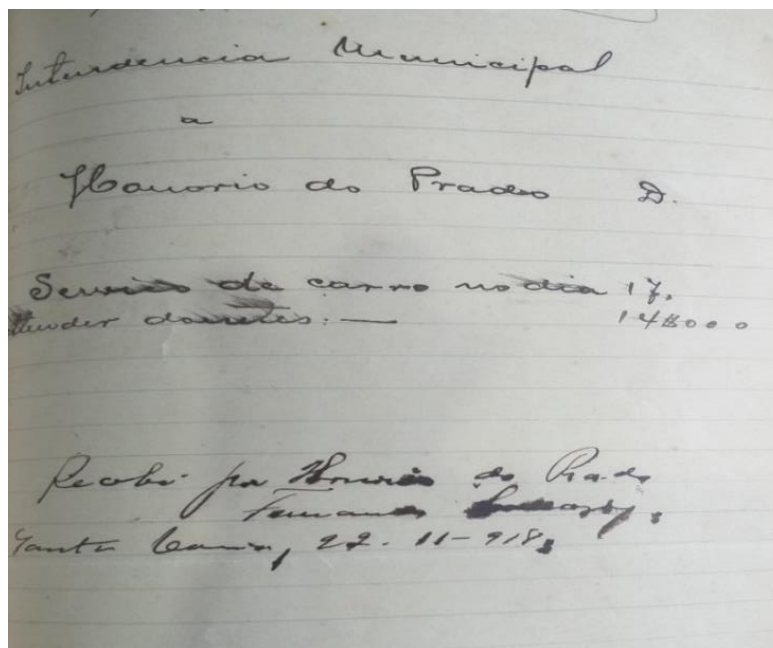 Intendencia Municipal
a
Honorio do Prado D.
Serviço de carro no dia 17.
doentes: — 14$000
Recebi por Honorio do Prado
Fernando
Santa Maria, 22-11-918,